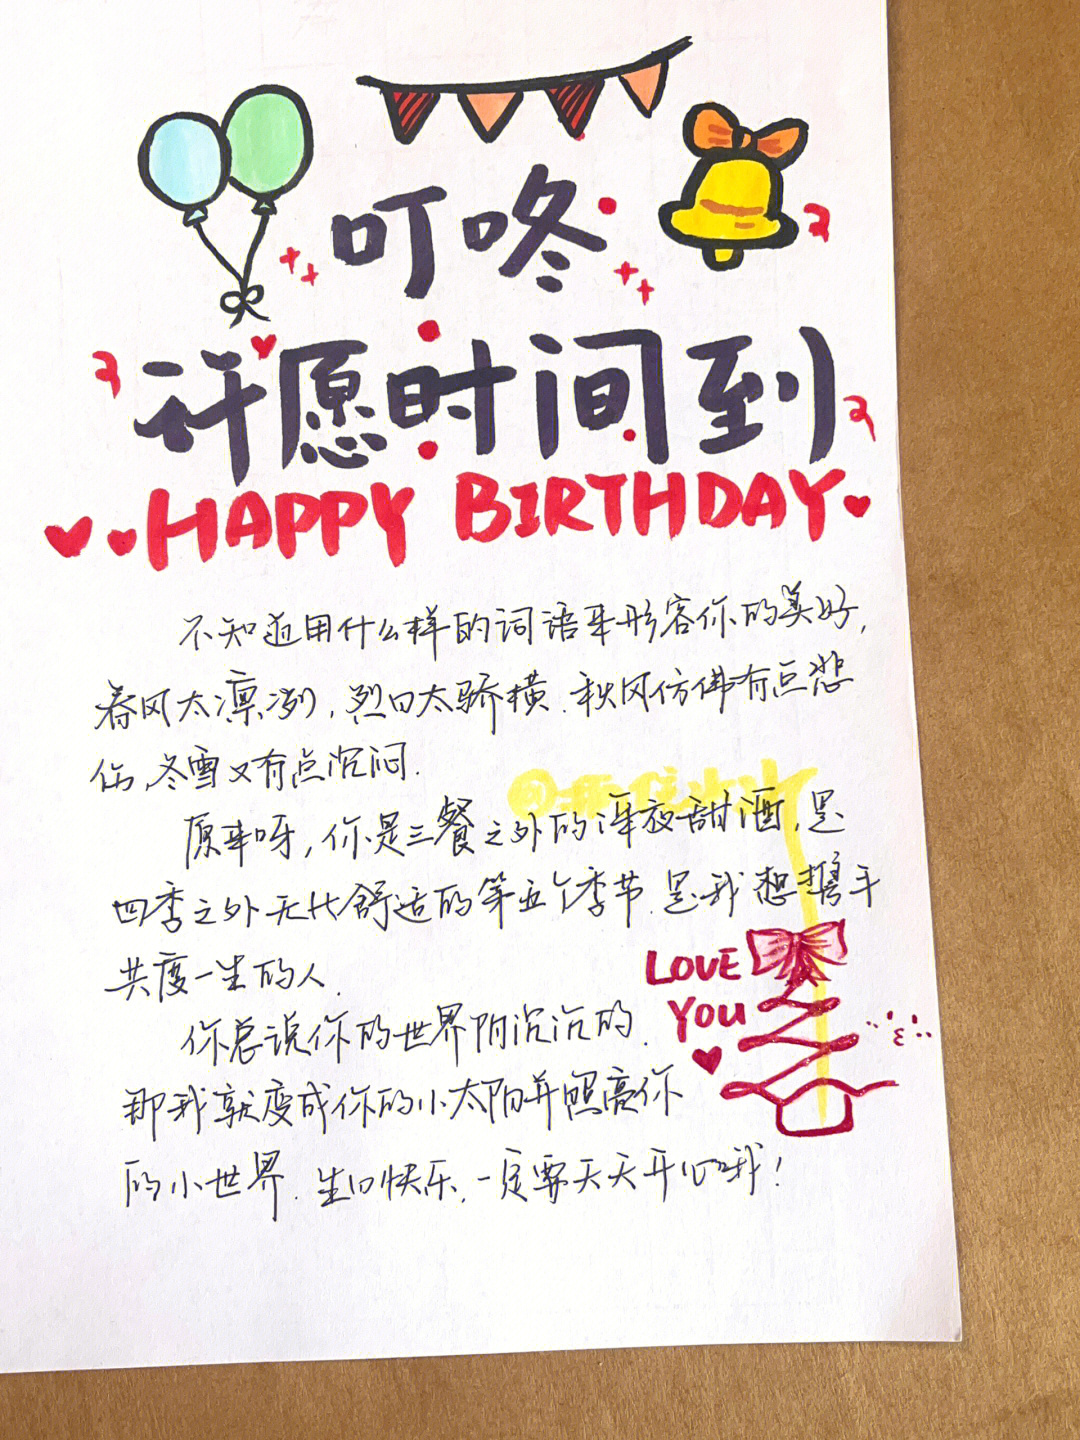 叮咚
许愿时间到
HAPPY BIRTHDAY
不知道用什么样的词语来形容你的美好,
春风太凛冽,烈日太骄横.秋风仿佛有点悲
伤,冬雪又有点沉闷.
原来呀,你是三餐之外的深夜甜酒,是
四季之外无比舒适的第五个季节.是我想携手
共度一生的人.
LOVE
YOU
你总说你的世界阴沉沉的.
那我就变成你的小太阳并照亮你
的小世界.生日快乐,一定要天天开心哦!